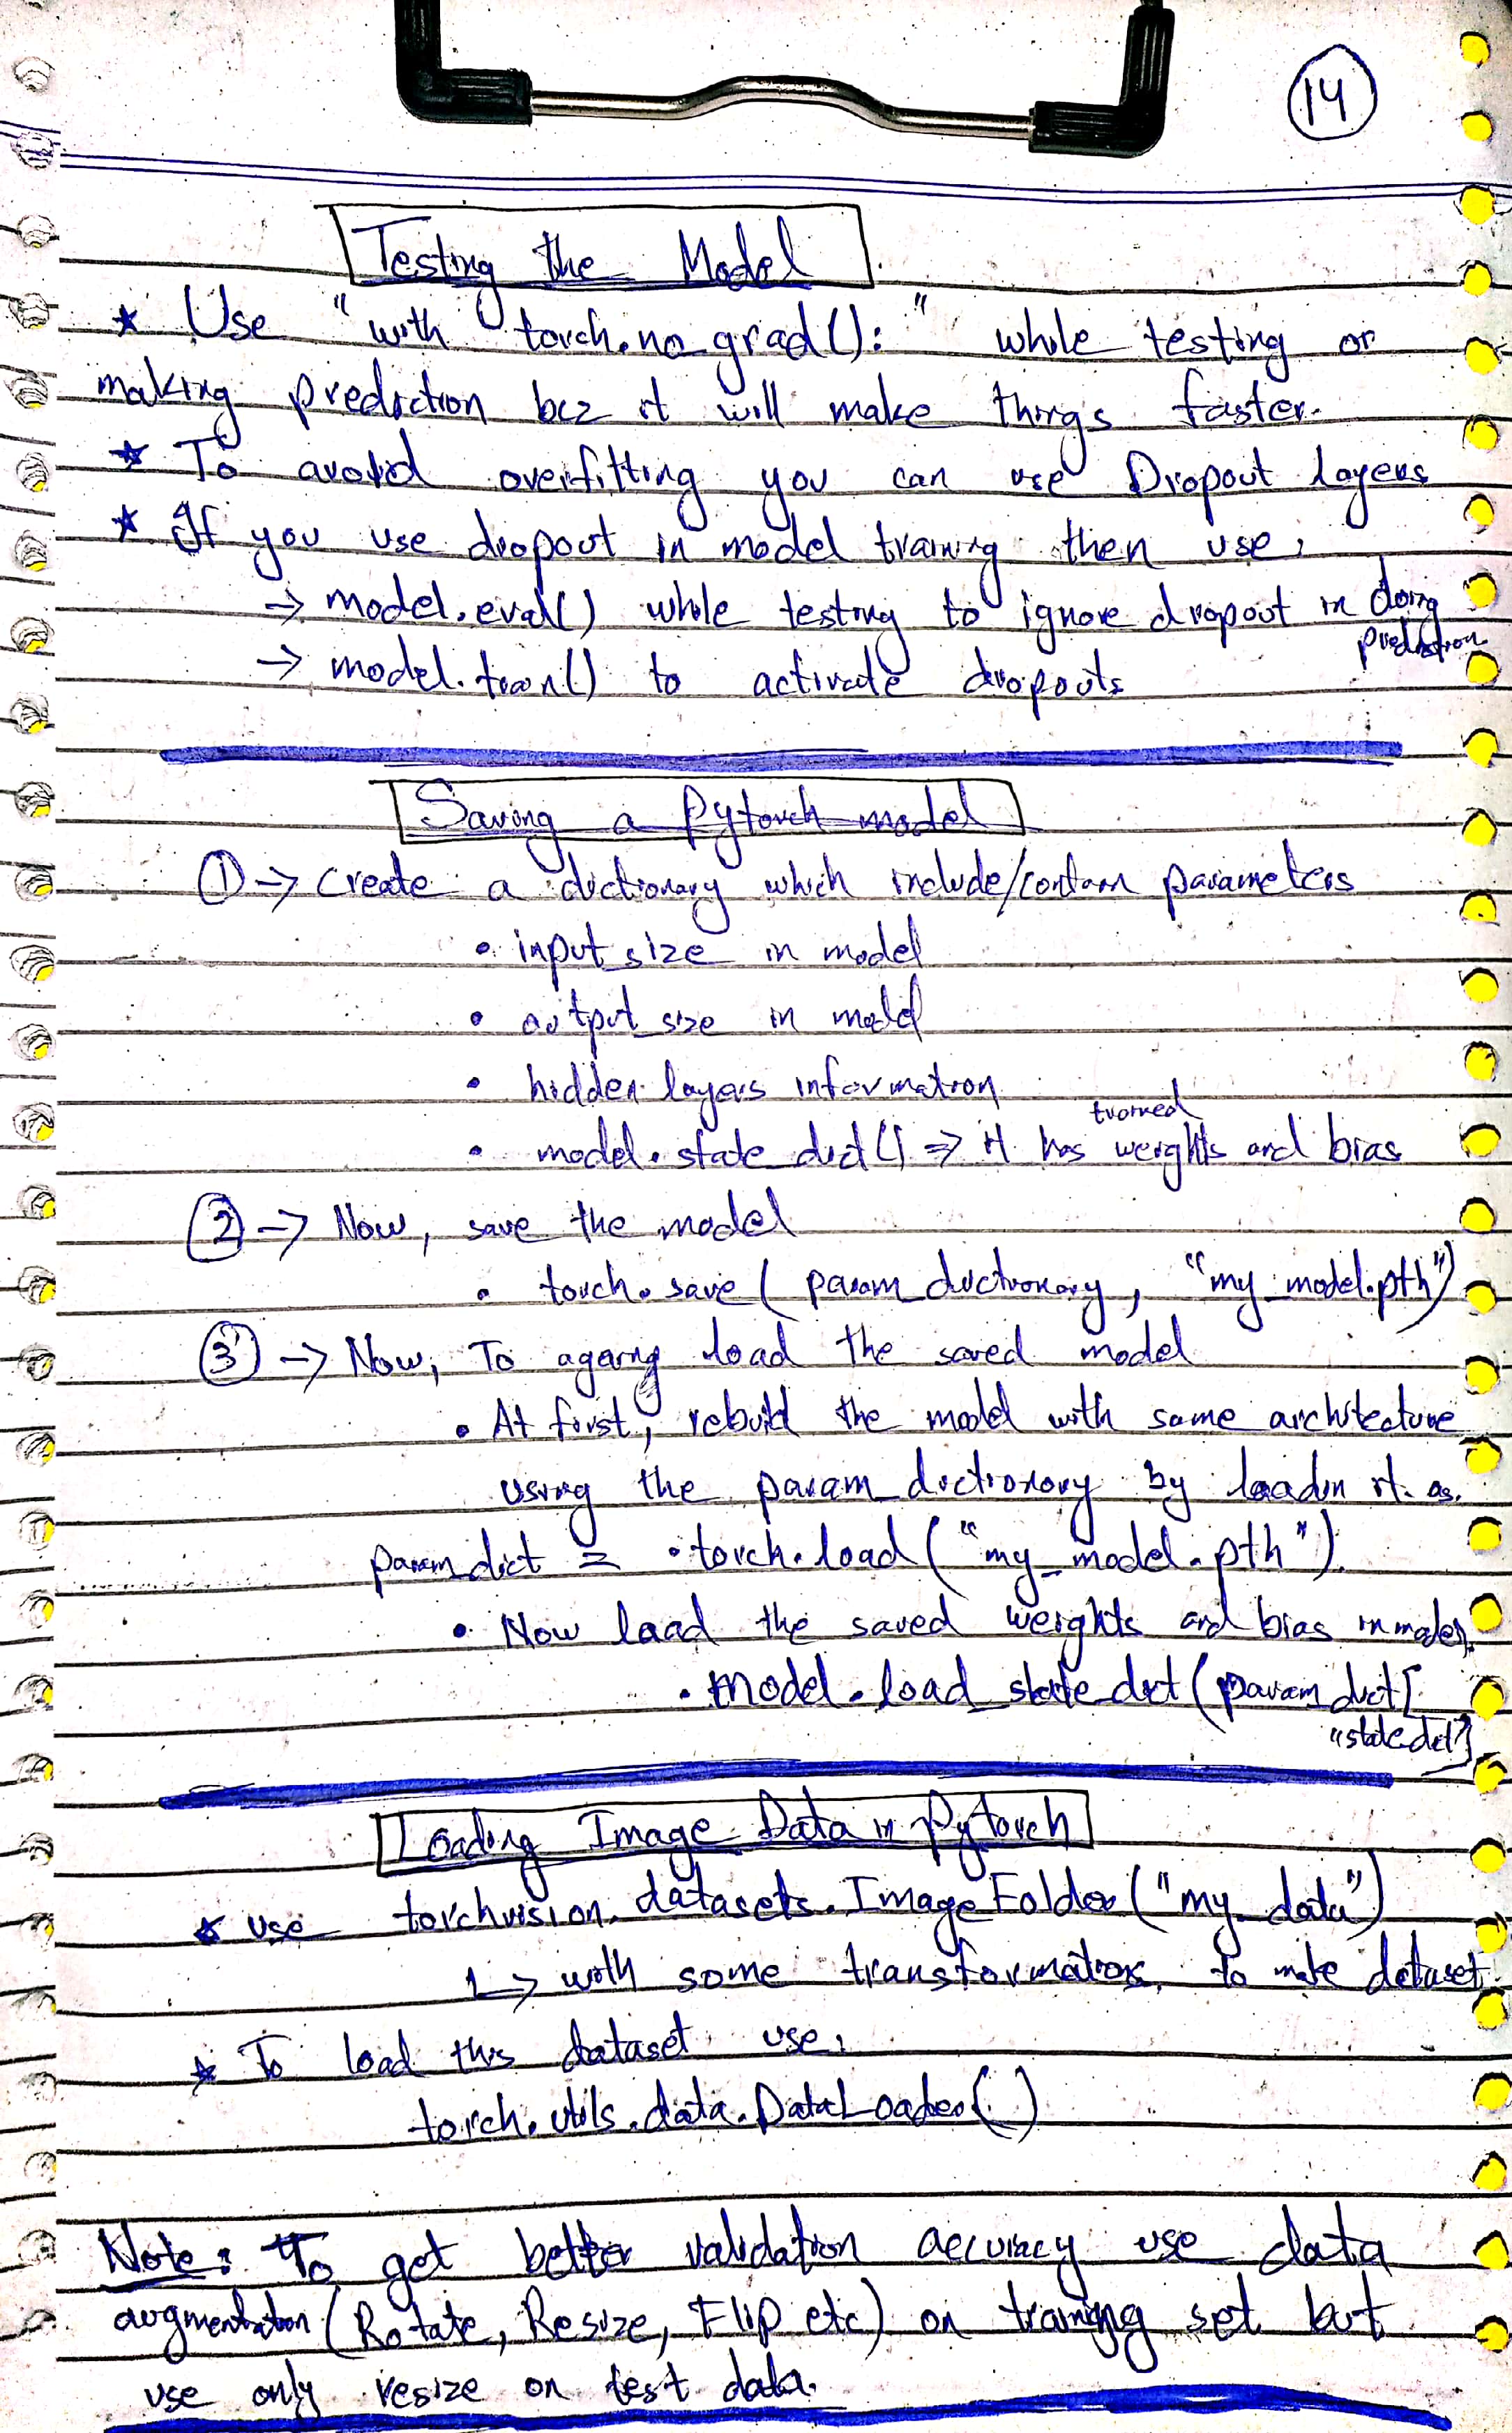 14
Testing the Model
* Use "with torch.no_grad():" while testing or
making prediction bcz it will make things faster.
* To avoid overfitting you can use Dropout layers
* If you use dropout in model training then use,
→ model.eval() while testing to ignore dropout in doing
prediction
→ model.train() to activate dropouts
Saving a Pytorch model
① → Create a dictionary which include/contain parameters
• input size in model
• output size in model
• hidden layers information
trained
• model.state_dict() ⇒ it has weights and bias
② → Now, save the model
• torch.save( param_dictionary, "my_model.pth")
③ → Now, To againg load the saved model
• At first, rebuild the model with same architecture
using the param_dictionary by loadin it as.
param_dict = • torch.load("my_model.pth").
• Now load the saved weights and bias in model.
• model.load_state_dict(param_dict[
"state_dict"]
Loading Image Data in Pytorch
* use torchvision.datasets.ImageFolder("my_data")
↳ with some transformations to make dataset
* To load this dataset use,
torch.utils.data.DataLoader()
Note: To get better validation accuracy use data
augmentation (Rotate, Resize, Flip etc) on training set but
use only resize on test data.